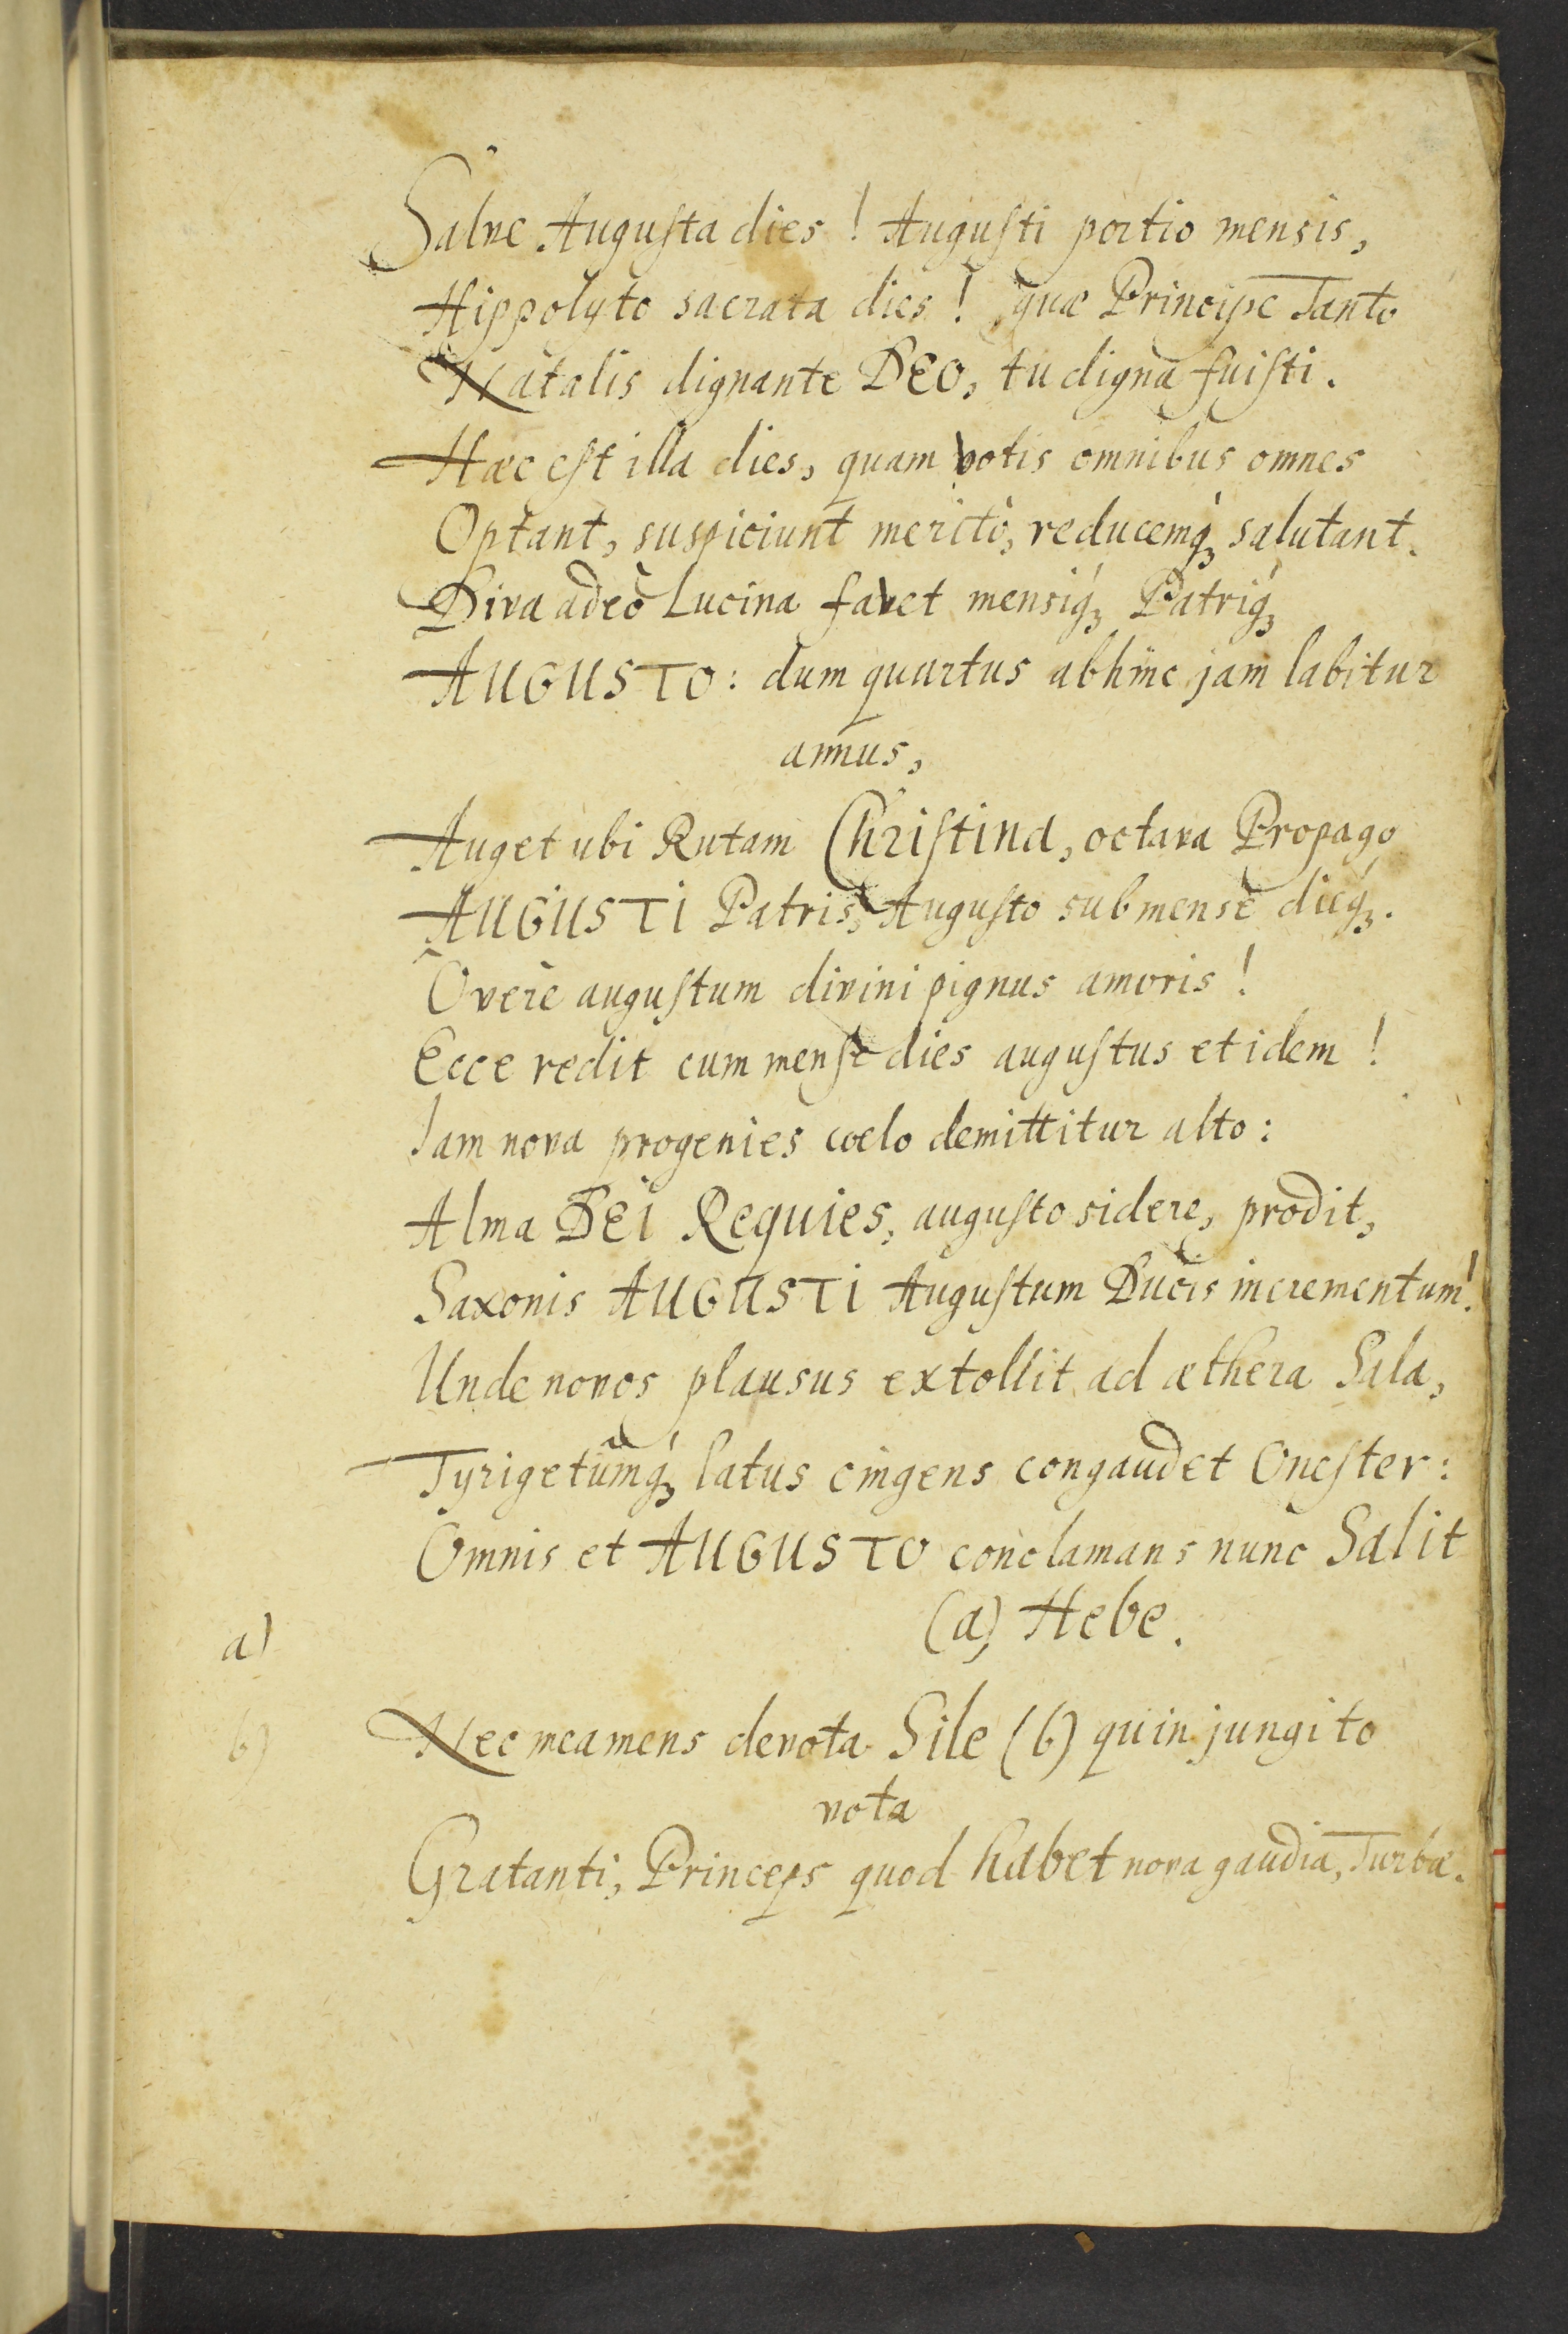 Salve Augusta dies! Augusti portio mensis,
Hippolyto sacrata dies! quæ Principe Tanto
Natalis dignante DEO, tu digna fuisti.
Hæc est illa dies, quam votis omnibus omnes
Optant, suspiciunt meritò, reducemq́ꝫ salutant.
Diva adeò Lucina favet mensiq́ꝫ Patriq́ꝫ
AUGUSTO: dum quartus abhinc jam labitur
annus,
Auget ubi Rutam Christina, octava Propago
AUGUSTI Patris, Augusto sub mense dieq́ꝫ.
O verè augustum divini pignus amoris!
Ecce redit cum mense dies augustus et idem!
Iam nova progenies cœlo demittitur alto:
Alma DEI Requies, augusto sidere, prodit,
Saxonis AUGUSTI Augustum Ducis incrementum!
Unde novos plausus extollit ad æthera Sala,
Tyrigetûmq́ꝫ latus cingens congaudet Onester:
Omnis et AUGUSTO conclamans nunc Salit
(a) Hebe.
a)
b) Nec mea mens devota Sile (b) quin jungito
vota
Gratanti, Princeps quod habet nova gaudia, Turbæ.